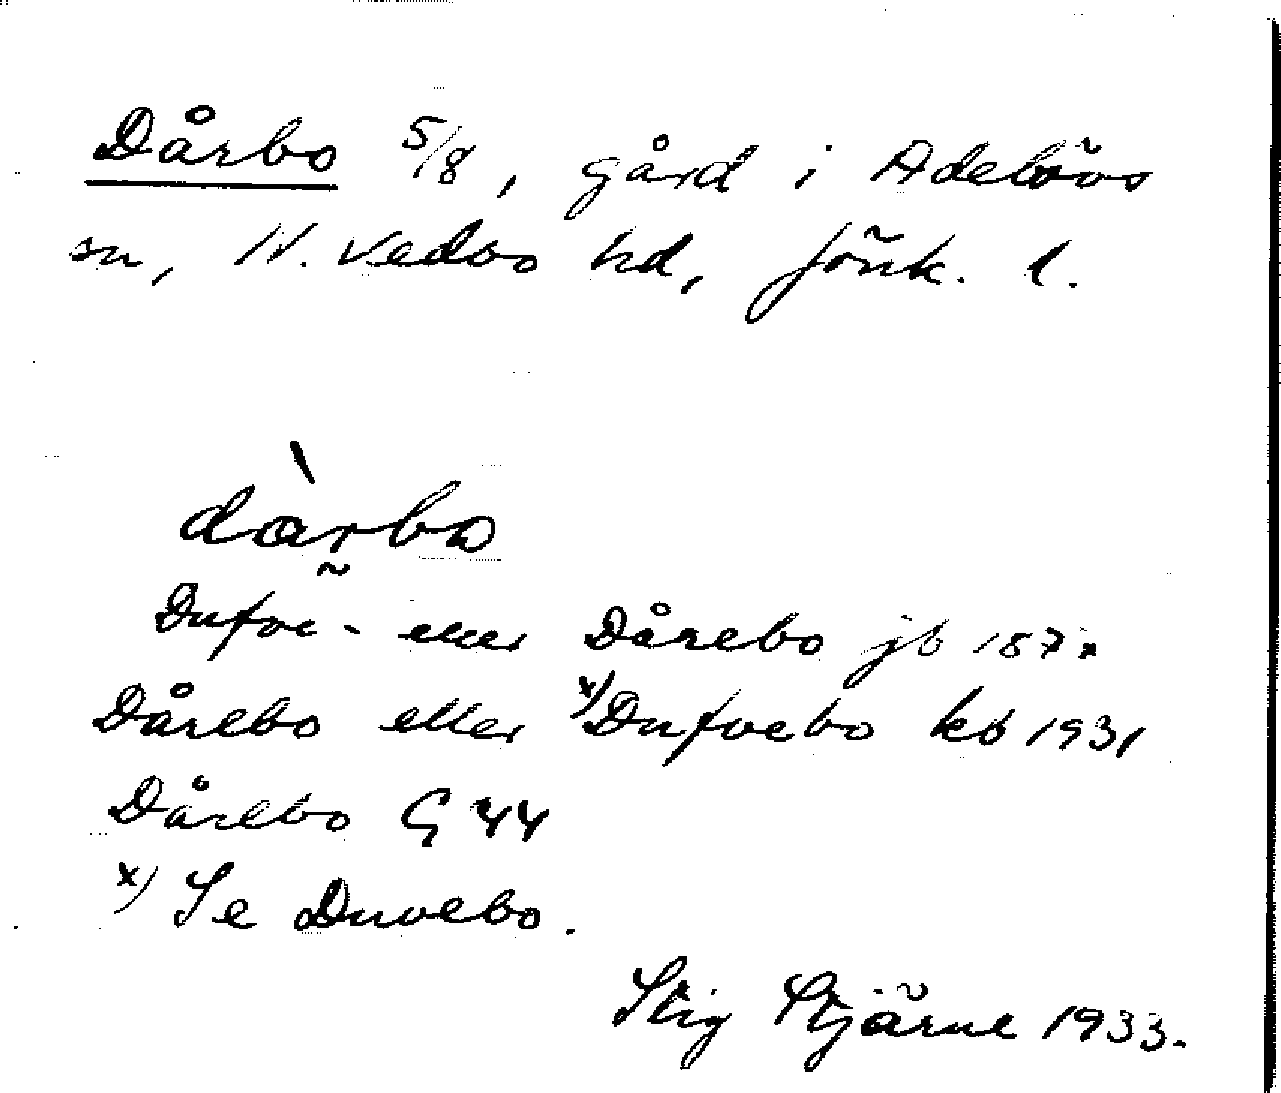 Dårbo 5/8, gård i Adelövs
sn, N. Vedbo hd, Jönk. l.
dàrbo
Dufve- eller Dårebo jb 187x
Dårebo eller x)Dufvebo kb 1931
Dårebo G 44
x) Se Duvebo.
Stig Stjärne 1933.